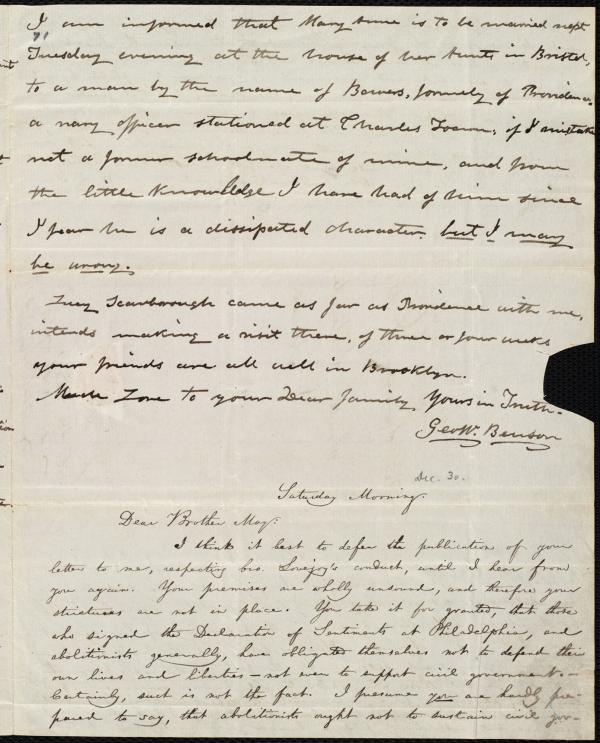 I am informed that Mary Anne is to be married next
Tuesday evening at the house of her Aunts in Bristol,
to a man by the name of Bowers, formely of Providence,
a navy officer stationed at Charles Town, if I mistake
not a former schoolmate of mine, and from
the little Knowledge I have had of him since
I fear he is a dissipated character but I may
be wrong.
Lucy Scarborough came as far as Providence with me,
intends making a visit there, of three or four weeks
your friends are all well in Brooklyn.
Much Love to your Dear family Yours in Truth.
Geo W. Benson
Dec. 30.
Saturday Morning.
Dear Brother May:
I think it best to defer the publication of your
letter to me, respecting bro. Lovejoy's conduct, until I hear from
you again. Your premises are wholly unsound, and therefore your
strictures are not in place. You take it for granted, that those
who signed the Declaration of Sentiments at Philadelphia, and
abolitionists generally, have obligated themselves not to defend their
own lives and liberties — not even to support civil government. —
Certainly, such is not the fact. I presume you are hardly pre-
pared to say, that abolitionists ought not to sustain civil gov-